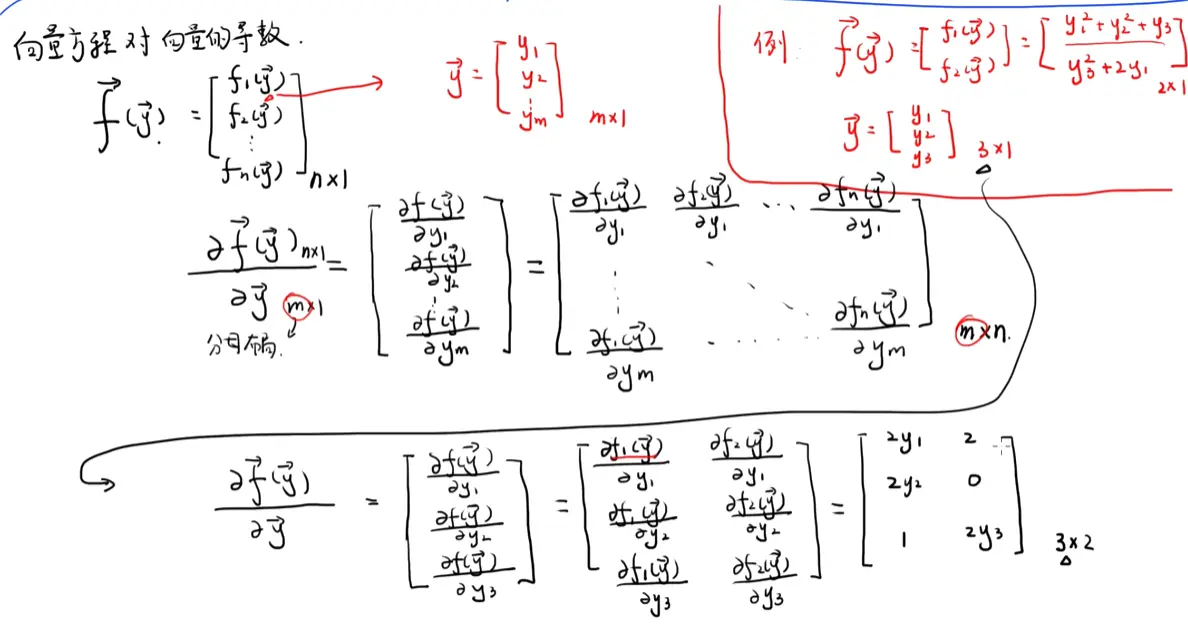 向量方程对向量的导数.
$\vec{f}(\vec{y}) = \begin{bmatrix} f_1(\vec{y}) \\ f_2(\vec{y}) \\ \vdots \\ f_n(\vec{y}) \end{bmatrix}_{n\times1}$ → $\vec{y} = \begin{bmatrix} y_1 \\ y_2 \\ \vdots \\ y_m \end{bmatrix}_{m\times1}$
例: $\vec{f}(\vec{y}) = \begin{bmatrix} f_1(\vec{y}) \\ f_2(\vec{y}) \end{bmatrix} = \begin{bmatrix} y_1^2+y_2^2+y_3 \\ \hline y_3^2+2y_1 \end{bmatrix}_{2\times1}$
$\vec{y} = \begin{bmatrix} y_1 \\ y_2 \\ y_3 \end{bmatrix}_{3\times1}$
$\frac{\partial \vec{f}(\vec{y})_{n\times1}}{\partial \vec{y}_{m\times1}} = \begin{bmatrix} \frac{\partial f(\vec{y})}{\partial y_1} \\ \frac{\partial f(\vec{y})}{\partial y_2} \\ \vdots \\ \frac{\partial f(\vec{y})}{\partial y_m} \end{bmatrix} = \begin{bmatrix} \frac{\partial f_1(\vec{y})}{\partial y_1} & \frac{\partial f_2(\vec{y})}{\partial y_1} & \cdots & \frac{\partial f_n(\vec{y})}{\partial y_1} \\ \vdots & & \ddots & \\ \frac{\partial f_1(\vec{y})}{\partial y_m} & \cdots & \cdots & \frac{\partial f_n(\vec{y})}{\partial y_m} \end{bmatrix}_{m\times n.}$
分母布局.
$\frac{\partial \vec{f}(\vec{y})}{\partial \vec{y}} = \begin{bmatrix} \frac{\partial f(\vec{y})}{\partial y_1} \\ \frac{\partial f(\vec{y})}{\partial y_2} \\ \frac{\partial f(\vec{y})}{\partial y_3} \end{bmatrix} = \begin{bmatrix} \frac{\partial f_1(\vec{y})}{\partial y_1} & \frac{\partial f_2(\vec{y})}{\partial y_1} \\ \frac{\partial f_1(\vec{y})}{\partial y_2} & \frac{\partial f_2(\vec{y})}{\partial y_2} \\ \frac{\partial f_1(\vec{y})}{\partial y_3} & \frac{\partial f_2(\vec{y})}{\partial y_3} \end{bmatrix} = \begin{bmatrix} 2y_1 & 2 \\ 2y_2 & 0 \\ 1 & 2y_3 \end{bmatrix}_{3\times2}$